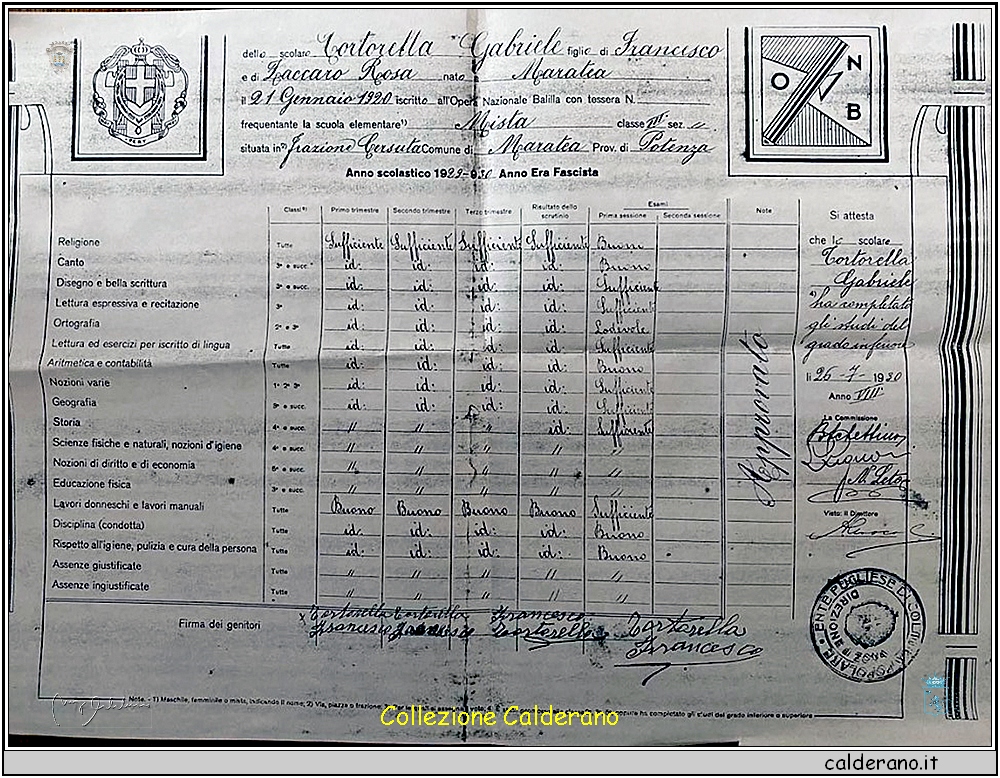 dello scolaro Tortorella Gabriele figlio di Francesco
e di Zaccaro Rosa nato a Maratea
il 21 Gennaio 1920 iscritto all'Opera Nazionale Balilla con tessera N.
frequentante la scuola elementare¹) Mista classe III sez. "
situata in²) Frazione Cersuta Comune di Maratea Prov. di Potenza
Anno scolastico 1929-930 Anno Era Fascista
O N B
FERT
Classi Primo trimestre Secondo trimestre Terzo trimestre Risultato dello scrutinio Esami Prima sessione Seconda sessione Note
Religione Tutte Sufficiente Sufficiente Sufficiente Sufficiente Buono
Canto 3ª e succ. id: id: id: id: Buono
Disegno e bella scrittura 3ª e succ. id: id: id: id: Sufficiente
Lettura espressiva e recitazione 3ª id: id: id: id: Sufficiente
Ortografia 2ª e 3ª id: id: id: id: Lodevole
Lettura ed esercizi per iscritto di lingua Tutte id: id: id: id: Sufficiente
Aritmetica e contabilità Tutte id: id: id: id: Buono
Nozioni varie 1ª 2ª 3ª id: id: id: id: Sufficiente
Geografia 3ª e succ. id: id: id: id: Sufficiente
Storia 4ª e succ. " " " id: Sufficiente
Scienze fisiche e naturali, nozioni d'igiene 4ª e succ. " " " " "
Nozioni di diritto e di economia 5ª e succ. " " " " "
Educazione fisica 3ª e succ. " " " " "
Lavori donneschi e lavori manuali Tutte Buono Buono Buono Buono Sufficiente
Disciplina (condotta) Tutte id: id: id: id: Buono
Rispetto all'igiene, pulizia e cura della persona Tutte id: id: id: id: Buono
Assenze giustificate Tutte " " " " "
Assenze ingiustificate Tutte " " " " "
Approvato
Firma dei genitori Tortorella Francesco Tortorella Francesco Francesco Tortorella Tortorella Francesco
Si attesta
che lo scolare
Tortorella
Gabriele
ha completato
gli studi del
grado inferiore
li 26-7-1930
Anno VIII
La Commissione
N. Leto
Visto: Il Direttore
ENTE PUGLIESE DI CULTURA POPOLARE
DIREZIONE
Note. - 1) Maschile, femminile o mista, indicando il nome; 2) Via, piazza o frazione; ha completato gli studi del grado inferiore o superiore
Collezione Calderano
calderano.it